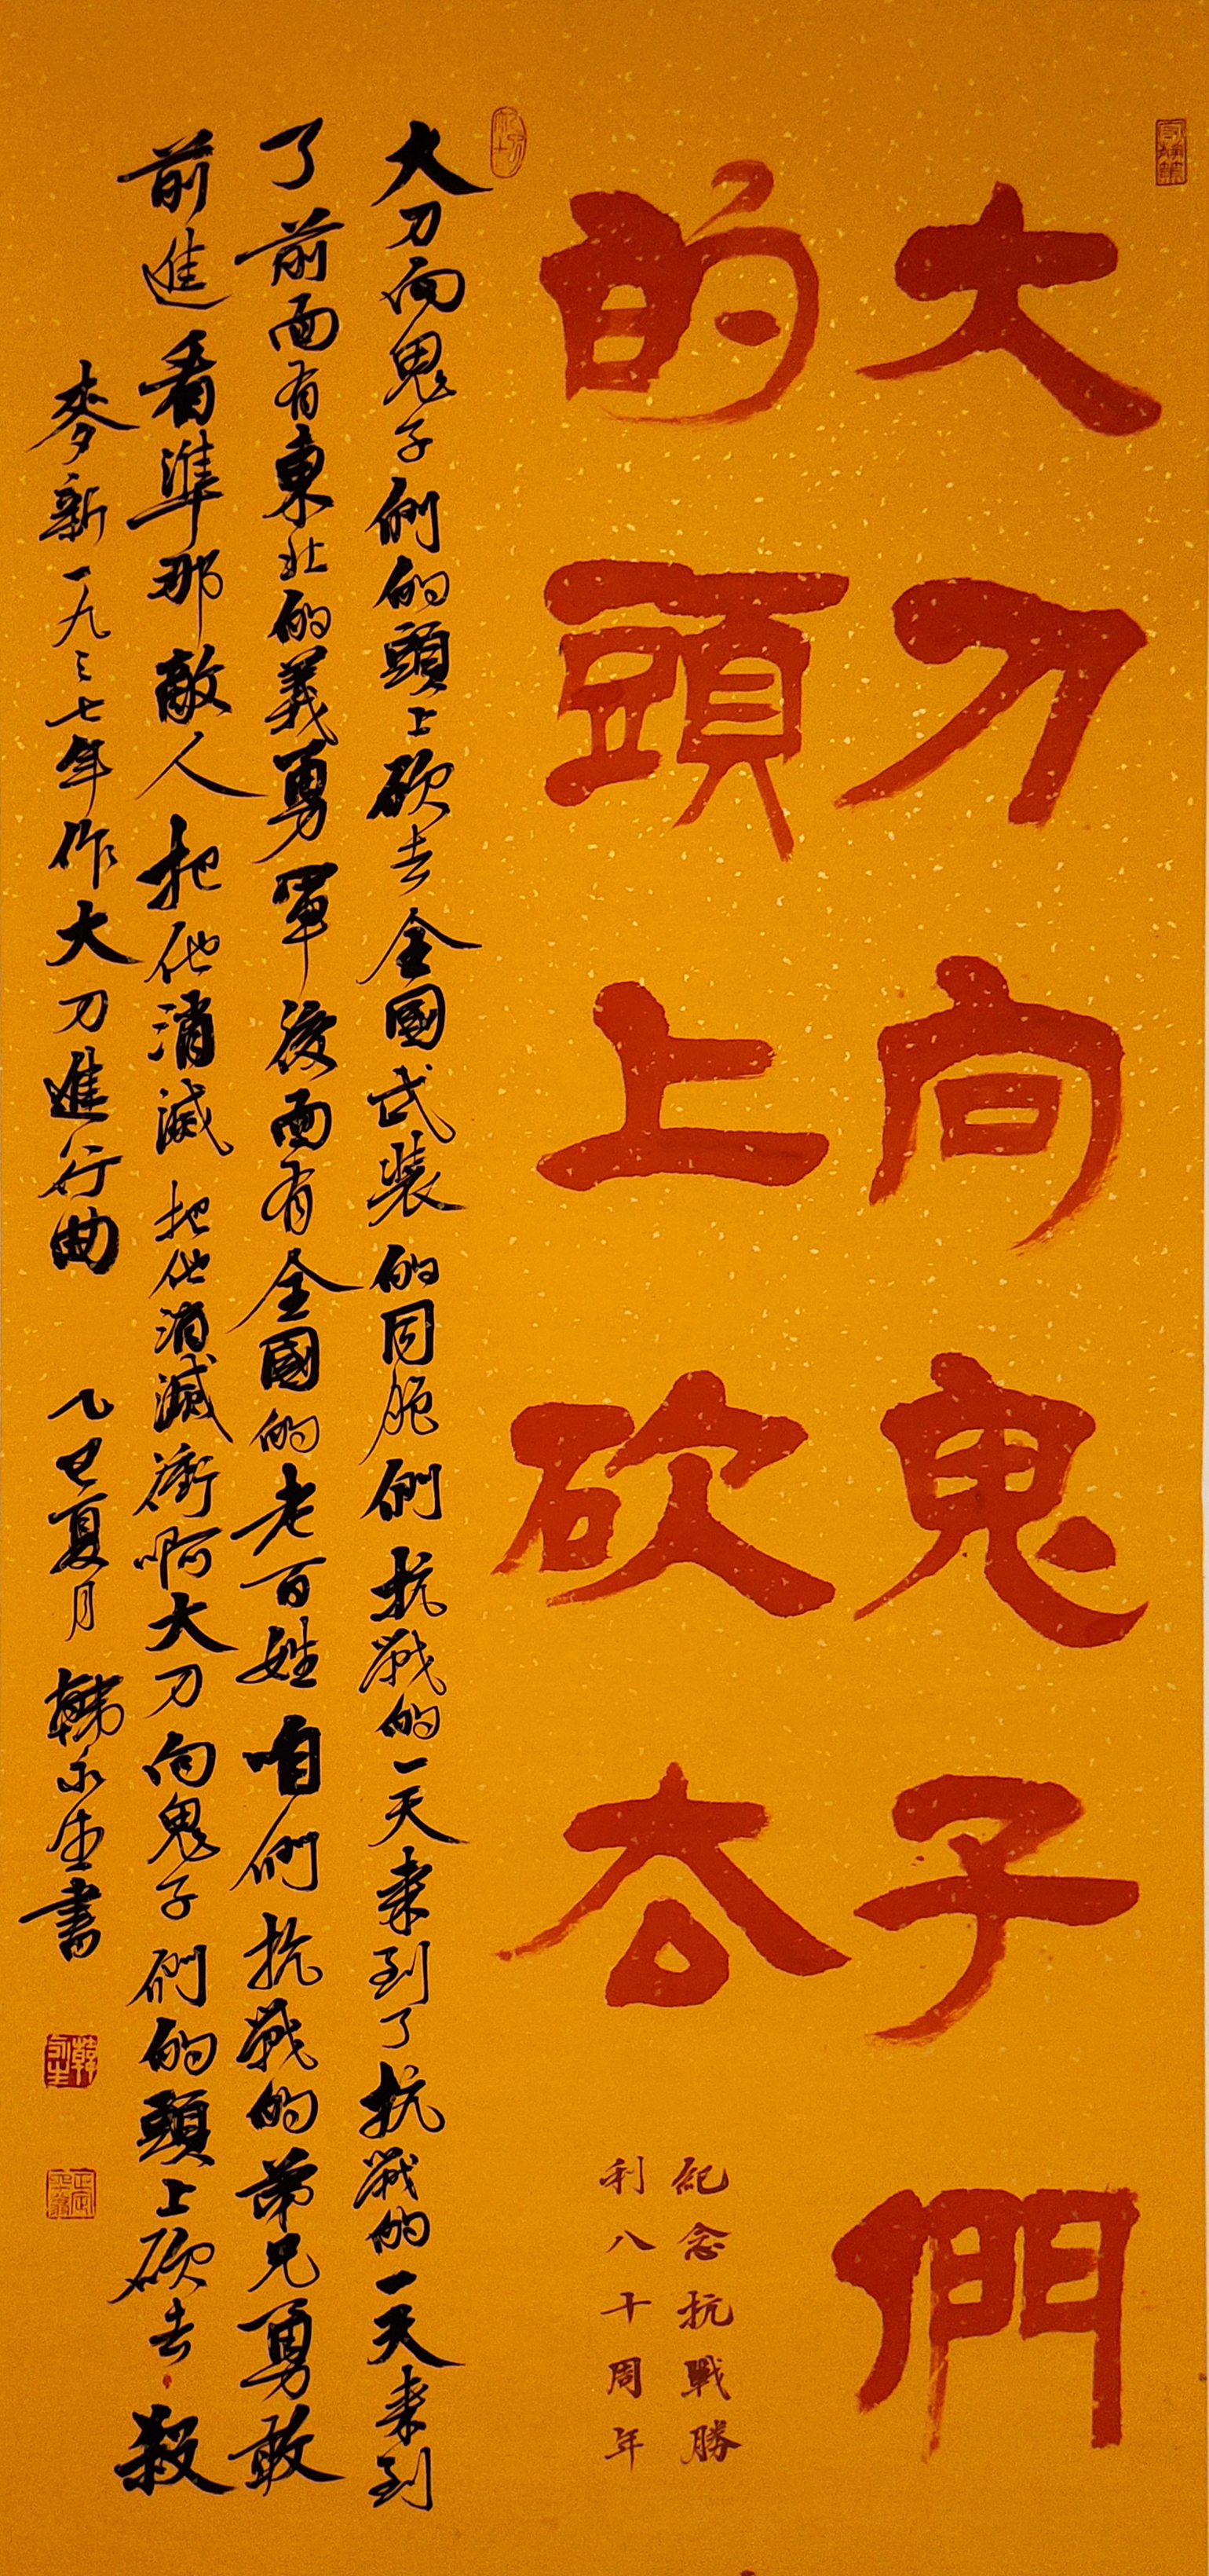 大刀向鬼子們
的頭上砍去
紀念抗戰勝
利八十周年
大刀向鬼子們的頭上砍去全國武裝的同胞們抗戰的一天來到了抗戰的一天來到
了前面有東北的義勇軍後面有全國的老百姓咱們抗戰的弟兄勇敢
前進看準那敵人把他消滅把他消滅衝啊大刀向鬼子們的頭上砍去殺
麥新一九三七年作大刀進行曲 乙巳夏月韓永生書